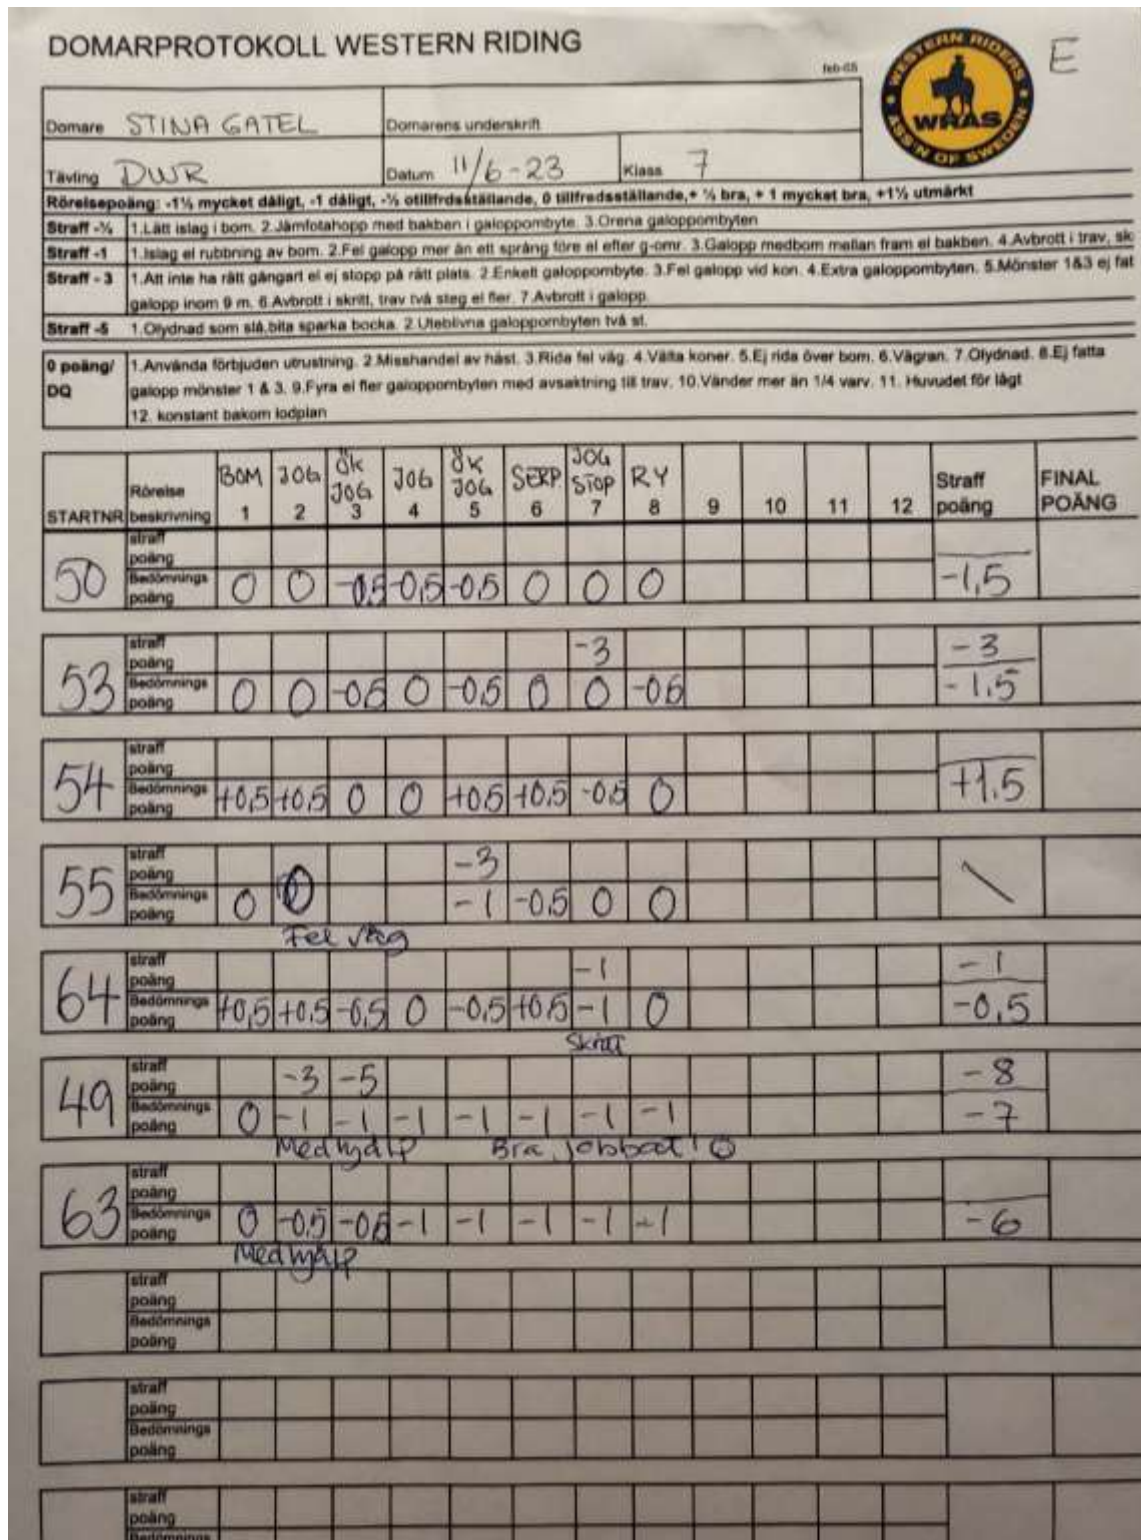 DOMARPROTOKOLL WESTERN RIDING
feb-05
E
WESTERN RIDERS
WRAS
ASS'N OF SWEDEN
Domare STINA GATEL Domarens underskrift
Tävling DWR Datum 11/6-23 Klass 7
Rörelsepoäng: -1½ mycket dåligt, -1 dåligt, -½ otillfredsställande, 0 tillfredsställande,+ ½ bra, + 1 mycket bra, +1½ utmärkt
Straff -½ 1.Lätt islag i bom. 2.Jämfotahopp med bakben i galoppombyte. 3.Orena galoppombyten
Straff -1 1.Islag el rubbning av bom. 2.Fel galopp mer än ett språng före el efter g-omr. 3.Galopp medbom mellan fram el bakben. 4.Avbrott i trav, sk
Straff - 3 1.Att inte ha rätt gångart el ej stopp på rätt plats. 2.Enkelt galoppombyte. 3.Fel galopp vid kon. 4.Extra galoppombyten. 5.Mönster 1&3 ej fat
galopp inom 9 m. 6.Avbrott i skritt, trav två steg el fler. 7.Avbrott i galopp.
Straff -5 1.Olydnad som slå,bita sparka bocka. 2.Uteblivna galoppombyten två st.
0 poäng/ DQ 1.Använda förbjuden utrustning. 2.Misshandel av häst. 3.Rida fel väg. 4.Välta koner. 5.Ej rida över bom. 6.Vägran. 7.Olydnad. 8.Ej fatta
galopp mönster 1 & 3. 9.Fyra el fler galoppombyten med avsaktning till trav. 10.Vänder mer än 1/4 varv. 11. Huvudet för lågt
12. konstant bakom lodplan
BOM JOG ÖK JOG JOG ÖK JOG SERP JOG STOP RY
STARTNR Rörelse beskrivning 1 2 3 4 5 6 7 8 9 10 11 12 Straff poäng FINAL POÄNG
straff poäng
50 Bedömnings poäng 0 0 -0,5 -0,5 -0,5 0 0 0 -1,5
straff poäng -3 -3
53 Bedömnings poäng 0 0 -0,5 0 -0,5 0 0 -0,5 -1,5
straff poäng
54 Bedömnings poäng +0,5 +0,5 0 0 +0,5 +0,5 -0,5 0 +1,5
straff poäng -3
55 Bedömnings poäng 0 0 -1 -0,5 0 0
Fel väg
straff poäng -1 -1
64 Bedömnings poäng +0,5 +0,5 -0,5 0 -0,5 +0,5 -1 0 -0,5
Skritt
straff poäng -3 -5 -8
49 Bedömnings poäng 0 -1 -1 -1 -1 -1 -1 -1 -7
Medhjälp Bra jobbat!
straff poäng
63 Bedömnings poäng 0 -0,5 -0,5 -1 -1 -1 -1 -1 -6
Medhjälp
straff poäng
Bedömnings poäng
straff poäng
Bedömnings poäng
straff poäng
Bedömnings